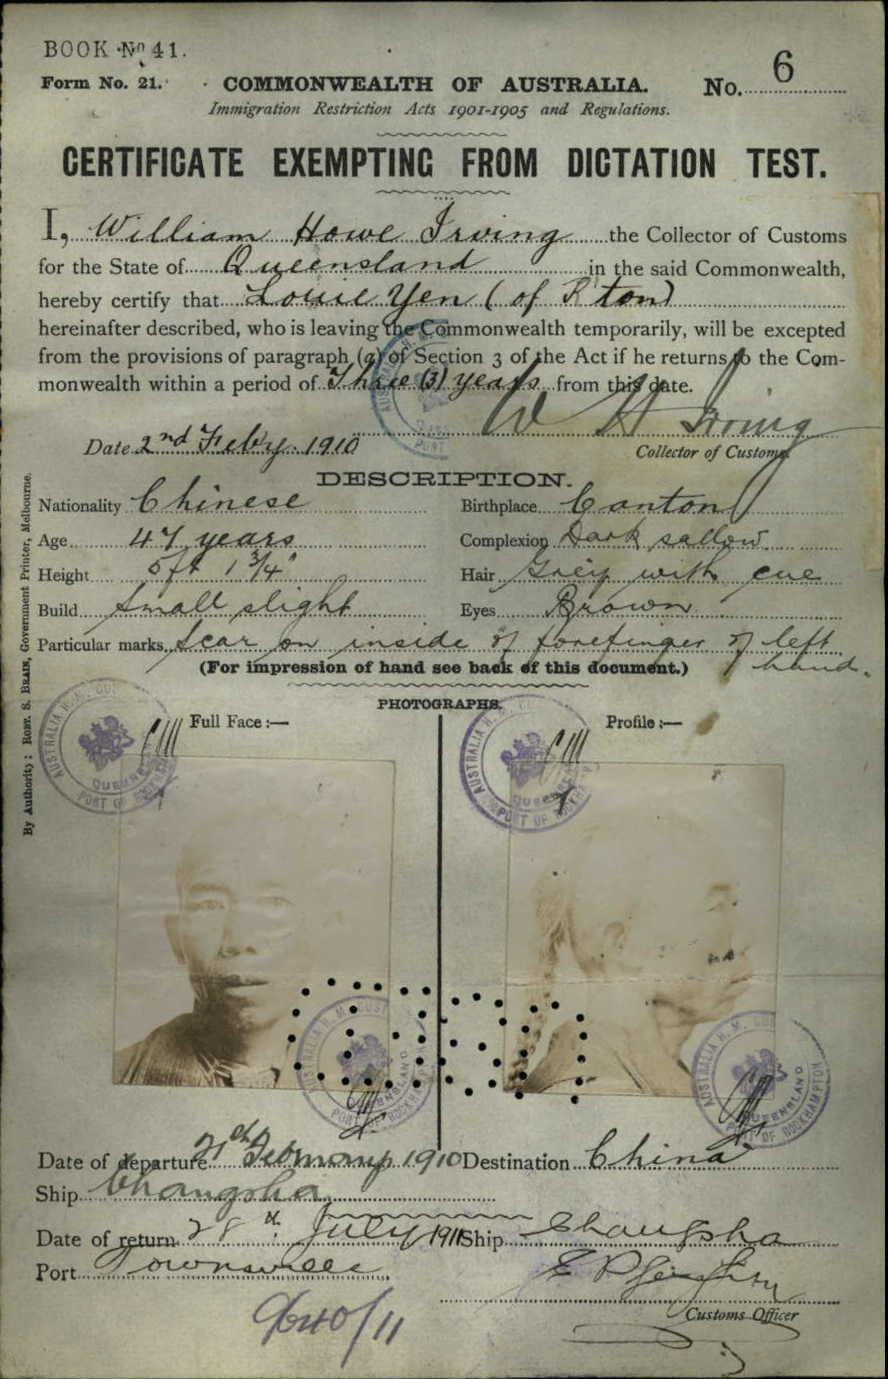 BOOK No 41.
Form No. 21. COMMONWEALTH OF AUSTRALIA. No. 6
Immigration Restriction Acts 1901-1905 and Regulations.
CERTIFICATE EXEMPTING FROM DICTATION TEST.
I, William Howe Irving the Collector of Customs
for the State of Queensland in the said Commonwealth,
hereby certify that Louie Yen (of R'ton)
hereinafter described, who is leaving the Commonwealth temporarily, will be excepted
from the provisions of paragraph (a) of Section 3 of the Act if he returns to the Com-
monwealth within a period of Three (3) years from this date.
W H Irving
Date 2nd Feby. 1910 Collector of Customs
DESCRIPTION.
Nationality Chinese Birthplace Canton
Age 47 years Complexion Dark sallow
Height 5ft 1 3/4" Hair Grey with cue
Build Small slight Eyes Brown
Particular marks Scar on inside of forefinger of left
hand.
(For impression of hand see back of this document.)
PHOTOGRAPHS.
Full Face :— Profile :—
AUSTRALIA H.M. CUSTOMS QUEENSLAND PORT OF ROCKHAMPTON
AUSTRALIA H.M. CUSTOMS QUEENSLAND PORT OF ROCKHAMPTON
AUSTRALIA H.M. CUSTOMS QUEENSLAND PORT OF ROCKHAMPTON
AUSTRALIA H.M. CUSTOMS QUEENSLAND PORT OF ROCKHAMPTON
Date of departure 21st February 1910 Destination China
Ship Changsha
Date of return 28th July 1911 Ship Changsha
Port Townsville
Customs Officer
/11
By Authority: ROBT. S. BRAIN, Government Printer, Melbourne.